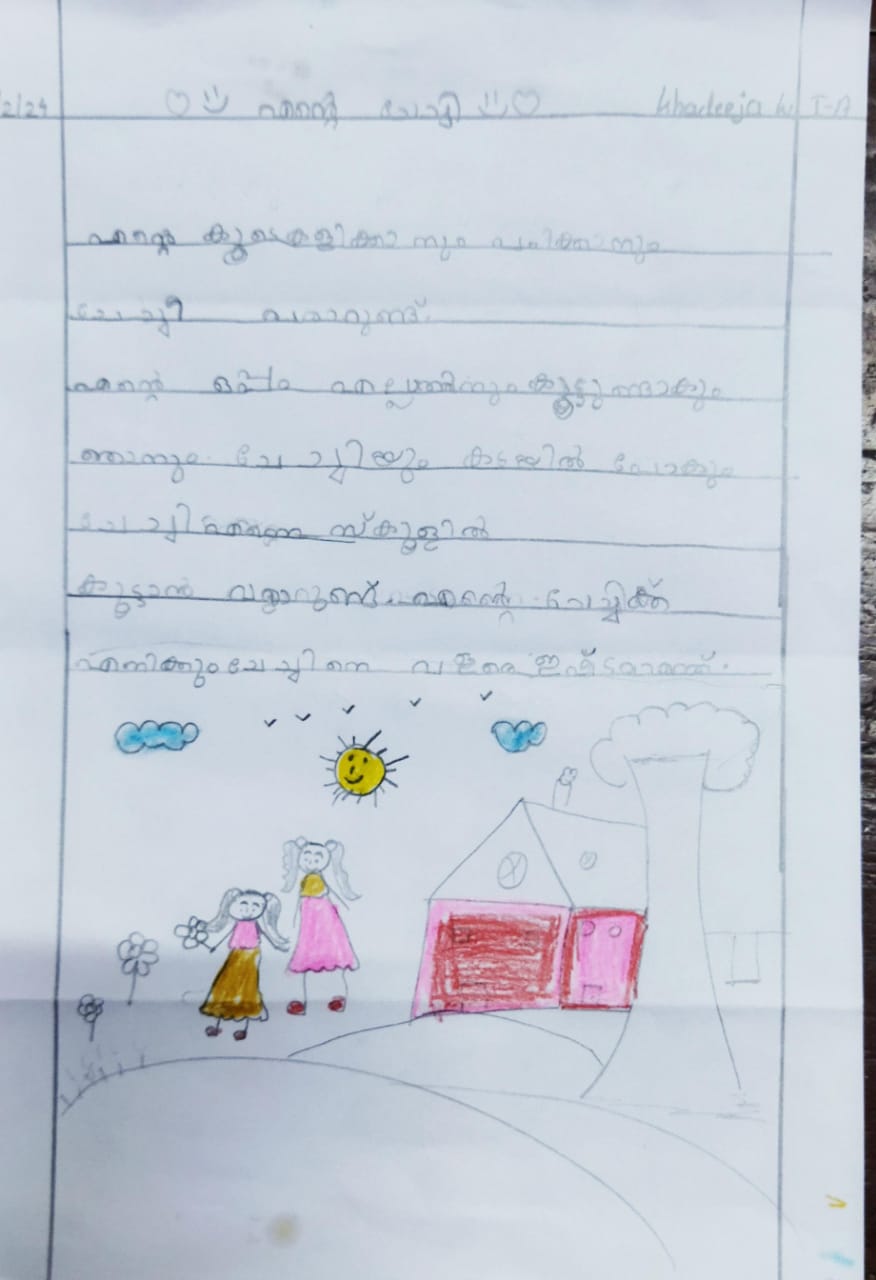 /2/24 എന്റെ ചേച്ചി Khadeeja w I-A
എന്റെ കൂടെ കളിക്കാനും പഠിക്കാനും
ചേച്ചി വരാറുണ്ട്.
എന്റെ ഒപ്പം എല്ലാത്തിനും കൂട്ടുണ്ടാകും
ഞാനും ചേച്ചിയും കടയിൽ പോകും
ചേച്ചി എന്നെ സ്കൂളിൽ
കൂട്ടാൻ വരാറുണ്ട്. എന്റെ ചേച്ചിക്ക്
എനിക്കും ചേച്ചിനെ വളരെ ഇഷ്ടമാണ്.